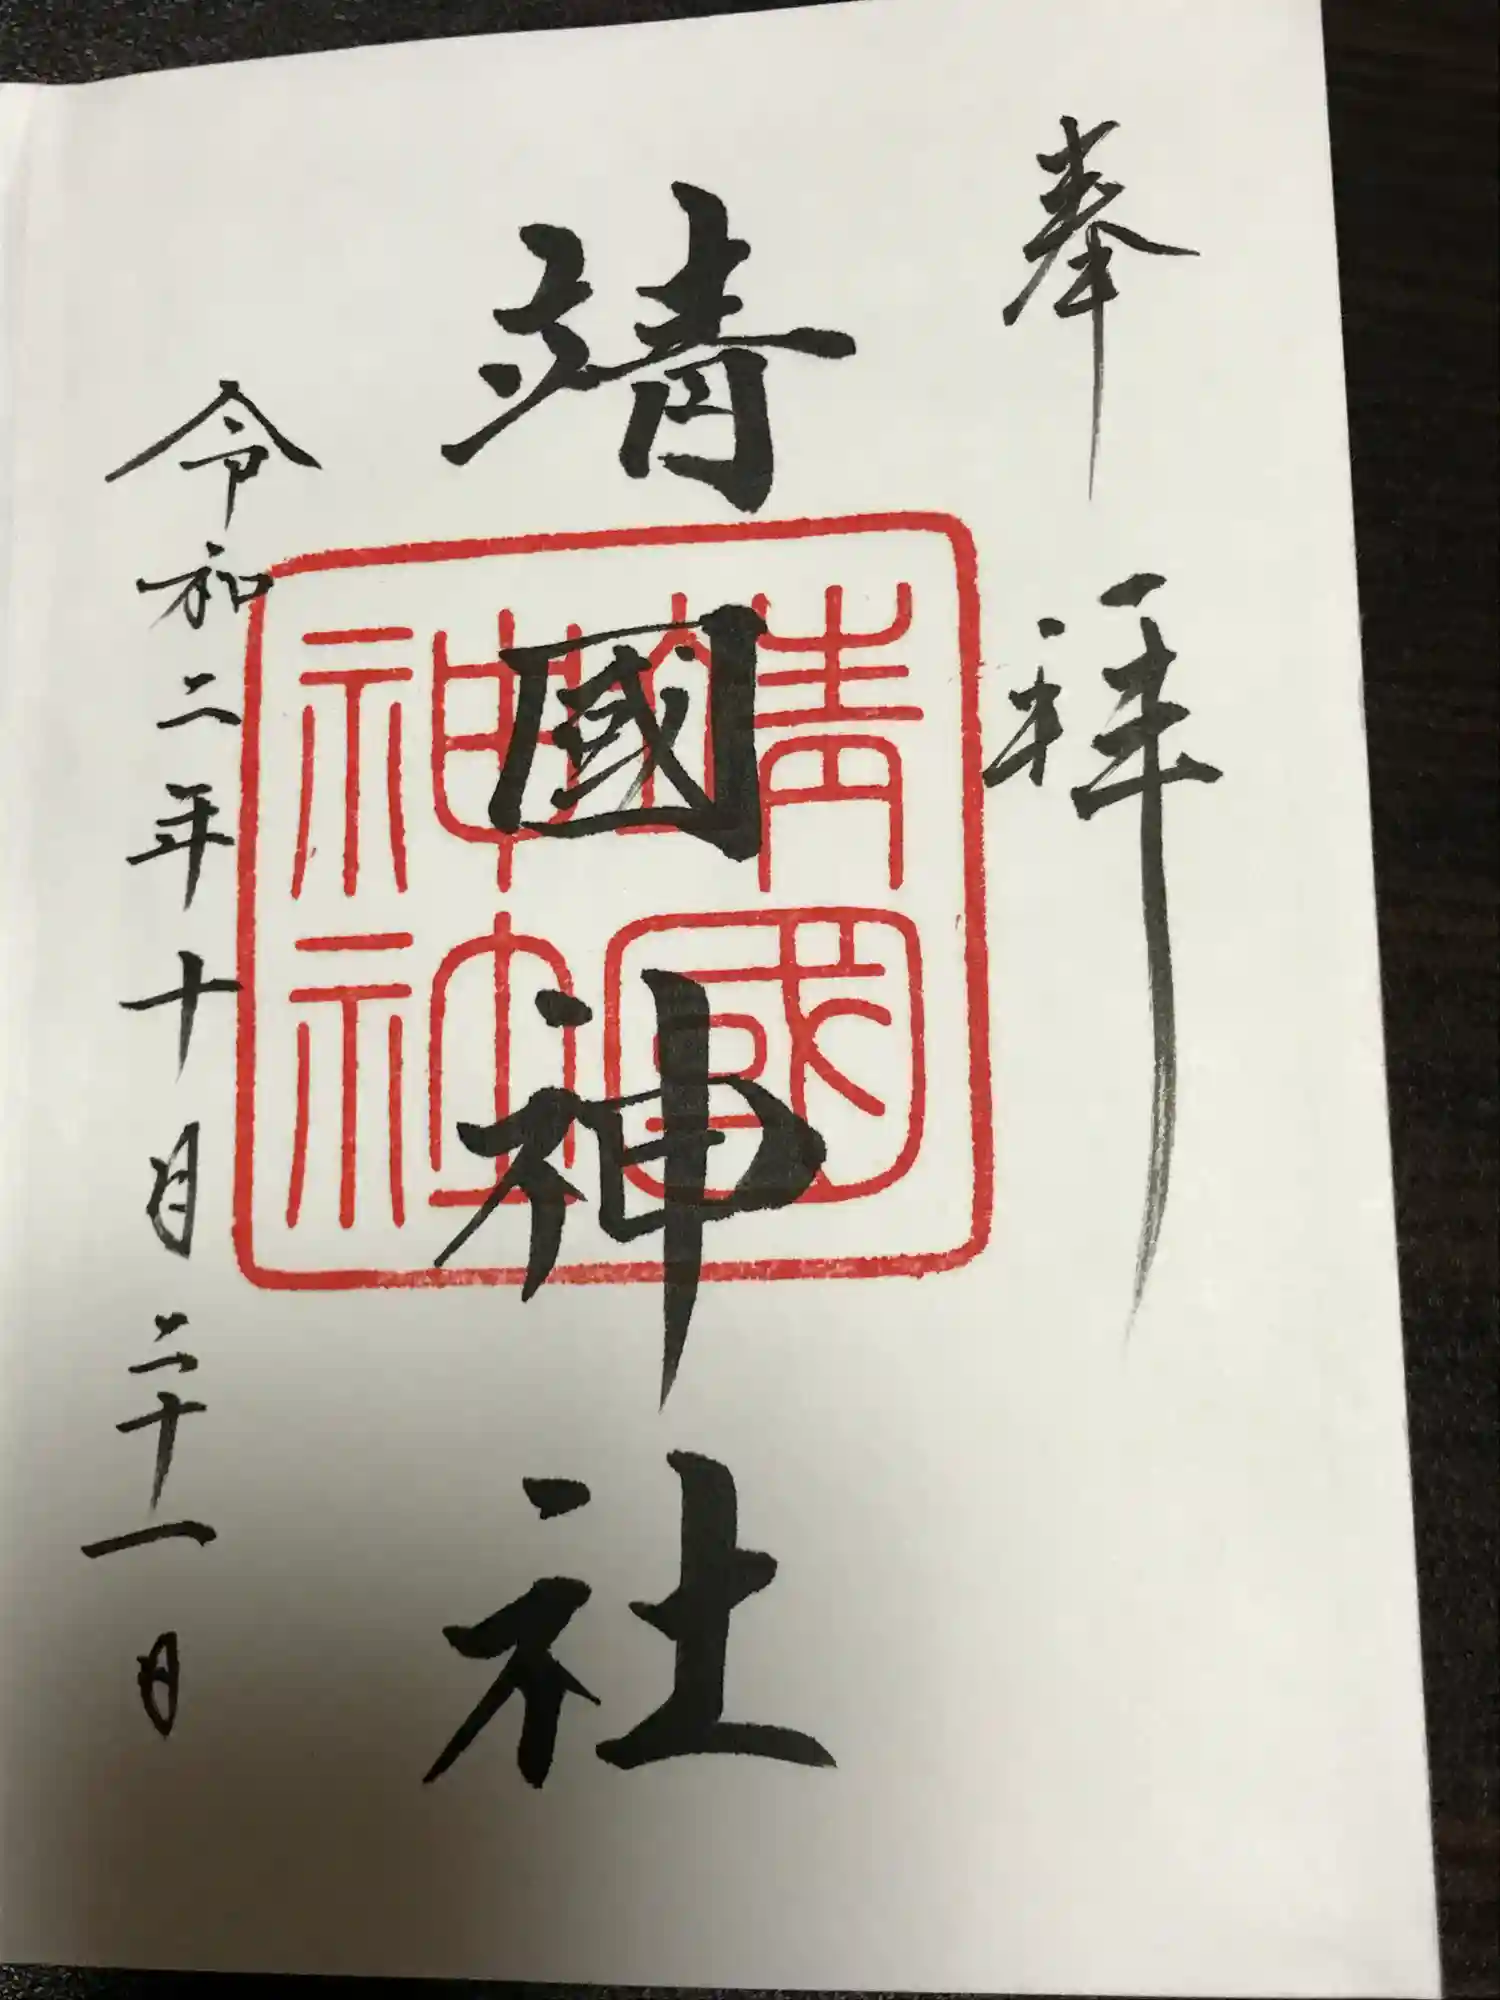 奉拝
靖國神社
靖國神社
令和二年十月二十一日